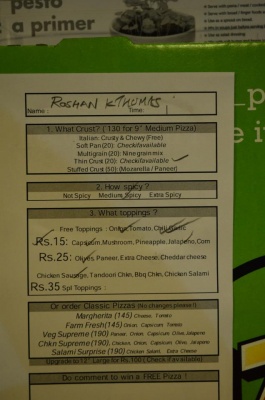 pesto
a primer
Name : ROSHAN K THOMAS Time:
1. What Crust? ( 130 for 9" Medium Pizza)
Italian: Crusty & Chewy (Free)
Soft Pan (20): Checkifavailable
Multigrain (20): Nine grain mix
Thin Crust (20): Checkifavailable
Stuffed Crust (50): (Mozarella / Paneer)
2. How spicy ?
Not Spicy Medium Spicy Extra Spicy
3. What toppings ?
Free Toppings : Onion, Tomato, Garlic
Rs.15: Capsicum, Mushroom, Pineapple, Jalapeno, Corn
Rs.25: Olives, Paneer, Extra Cheese, Cheddar cheese
Chicken Sausage, Tandoori Chkn, Bbq Chkn, Chicken Salami
Rs.35 Spl Toppings :
Or order Classic Pizzas (No changes please!)
Margherita (145) Cheese, Tomato
Farm Fresh (145) Onion, Capsicum, Tomato
Veg Supreme (190) Paneer, Onion, Capsicum, Olive, Jalapeno
Chkn Supreme (190) Chicken, Onion, Capsicum, Olive, Jalapeno
Salami Surprise (190) Chicken Salami, Extra Cheese
Upgrade to 12" Large for Rs.100 (Check if available)
Do comment to win a FREE Pizza !